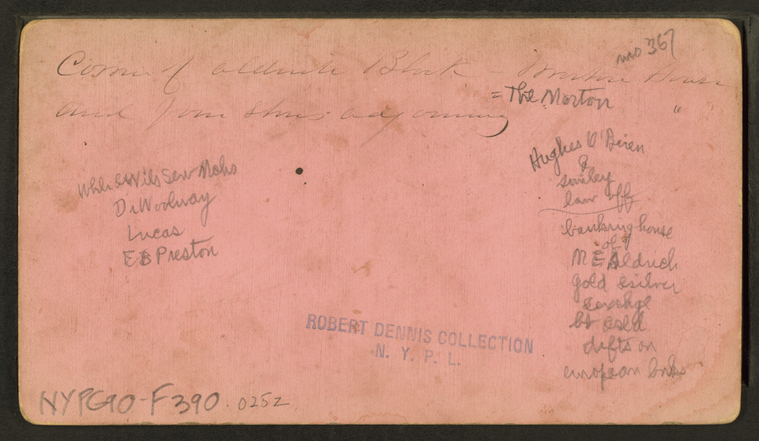 mo 367
Corner of Aldrich Block - Morton House
= The Morton "
and four stores adjoining
Whle & Wils Sew Mchs
D. Woolway
Lucas
E B Preston
Hughes O'Brien
&
Smiley
law off
banking house
of
M E Aldrich
gold & silver
exchge
bt & sld
dfts on
european bnks
ROBERT DENNIS COLLECTION
N. Y. P. L.
NYPG90-F390.0252